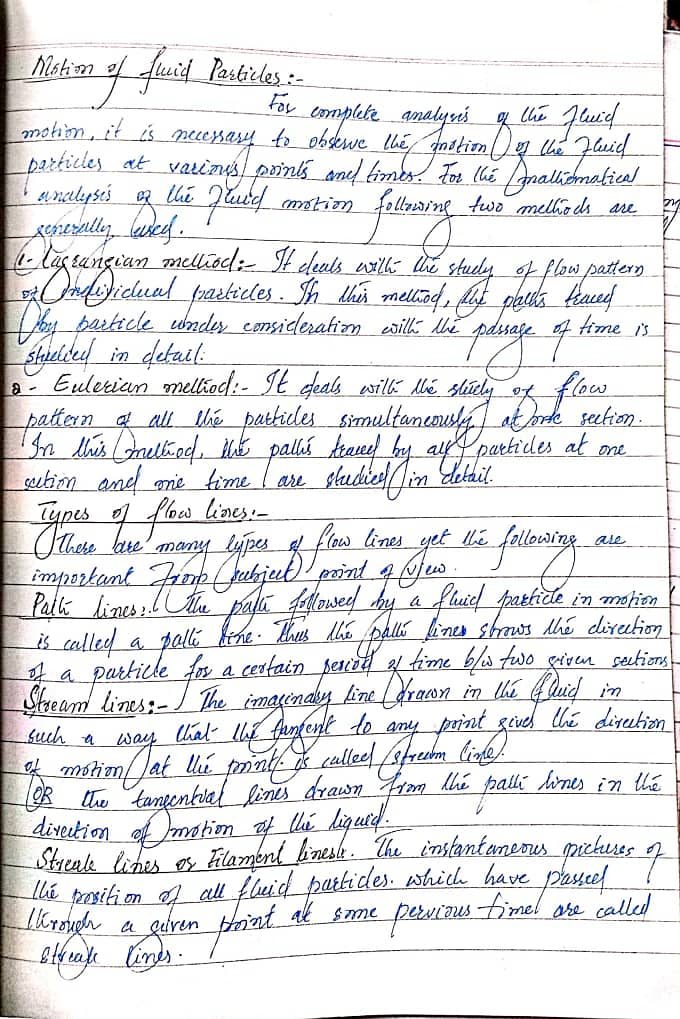 Motion of fluid Particles:-
For complete analysis of the fluid
motion, it is necessary to observe the motion of the fluid
particles at various points and times. For the mathematical
analysis of the fluid motion following two methods are
generally used.
1- Lagrangian method:- It deals with the study of flow pattern
of individual particles. In this method, the paths traced
by particle under consideration with the passage of time is
studied in detail.
2- Eulerian method:- It deals with the study of flow
pattern of all the particles simultaneously at one section.
In this method, the paths traced by all particles at one
section and one time are studied in detail.
Types of flow lines:-
There are many types of flow lines yet the following are
important from subject point of view.
Path lines:- The path followed by a fluid particle in motion
is called a path line. Thus the path lines shows the direction
of a particle for a certain period of time b/w two given sections
Stream lines:- The imaginary line drawn in the fluid in
such a way that the tangent to any point gives the direction
of motion at the point. is called stream line.
OR the tangentval lines drawn from the path lines in the
direction of motion of the liquid.
Streak lines or Filament lines:. The instantaneous pictures of
the position of all fluid particles. which have passed
through a given point at some pervious time are called
streak lines.